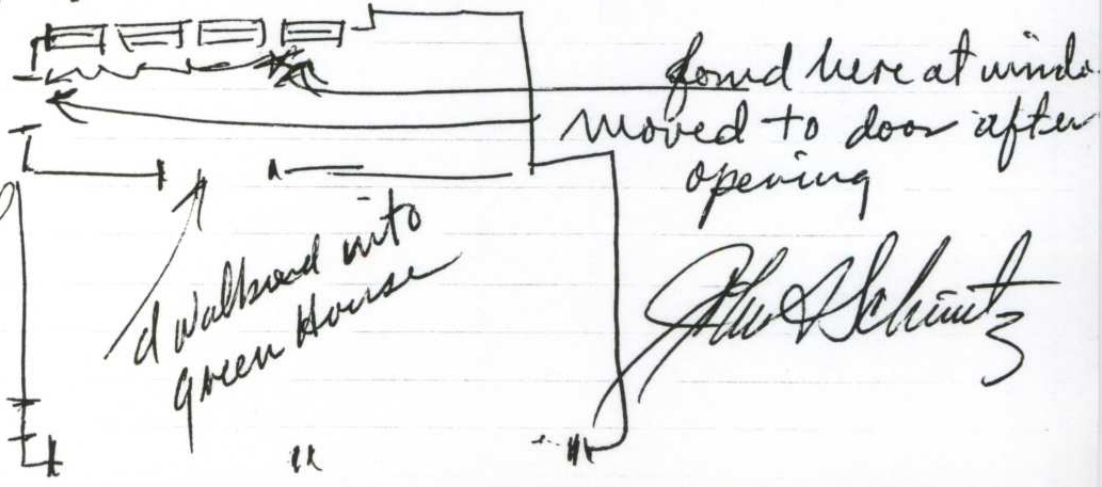 found here at windo
moved to door after
opening
d Wallboard into
green House
John Schmitz